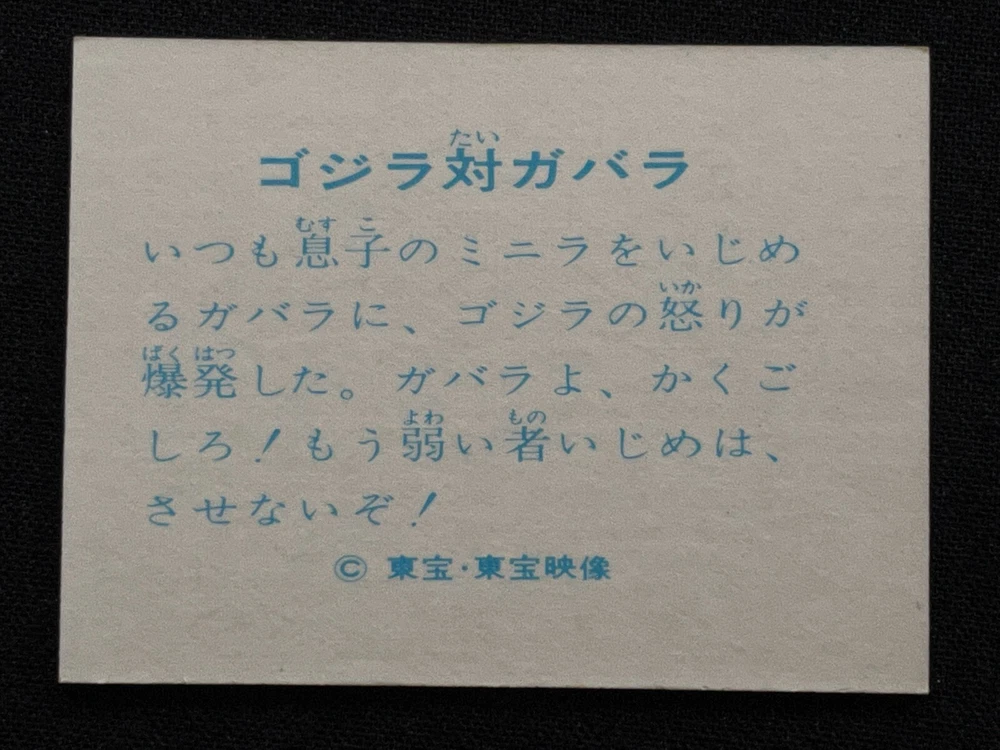 ゴジラ対ガバラ
いつも息子のミニラをいじめ
るガバラに、ゴジラの怒りが
爆発した。ガバラよ、かくご
しろ!もう弱い者いじめは、
させないぞ!
© 東宝・東宝映像